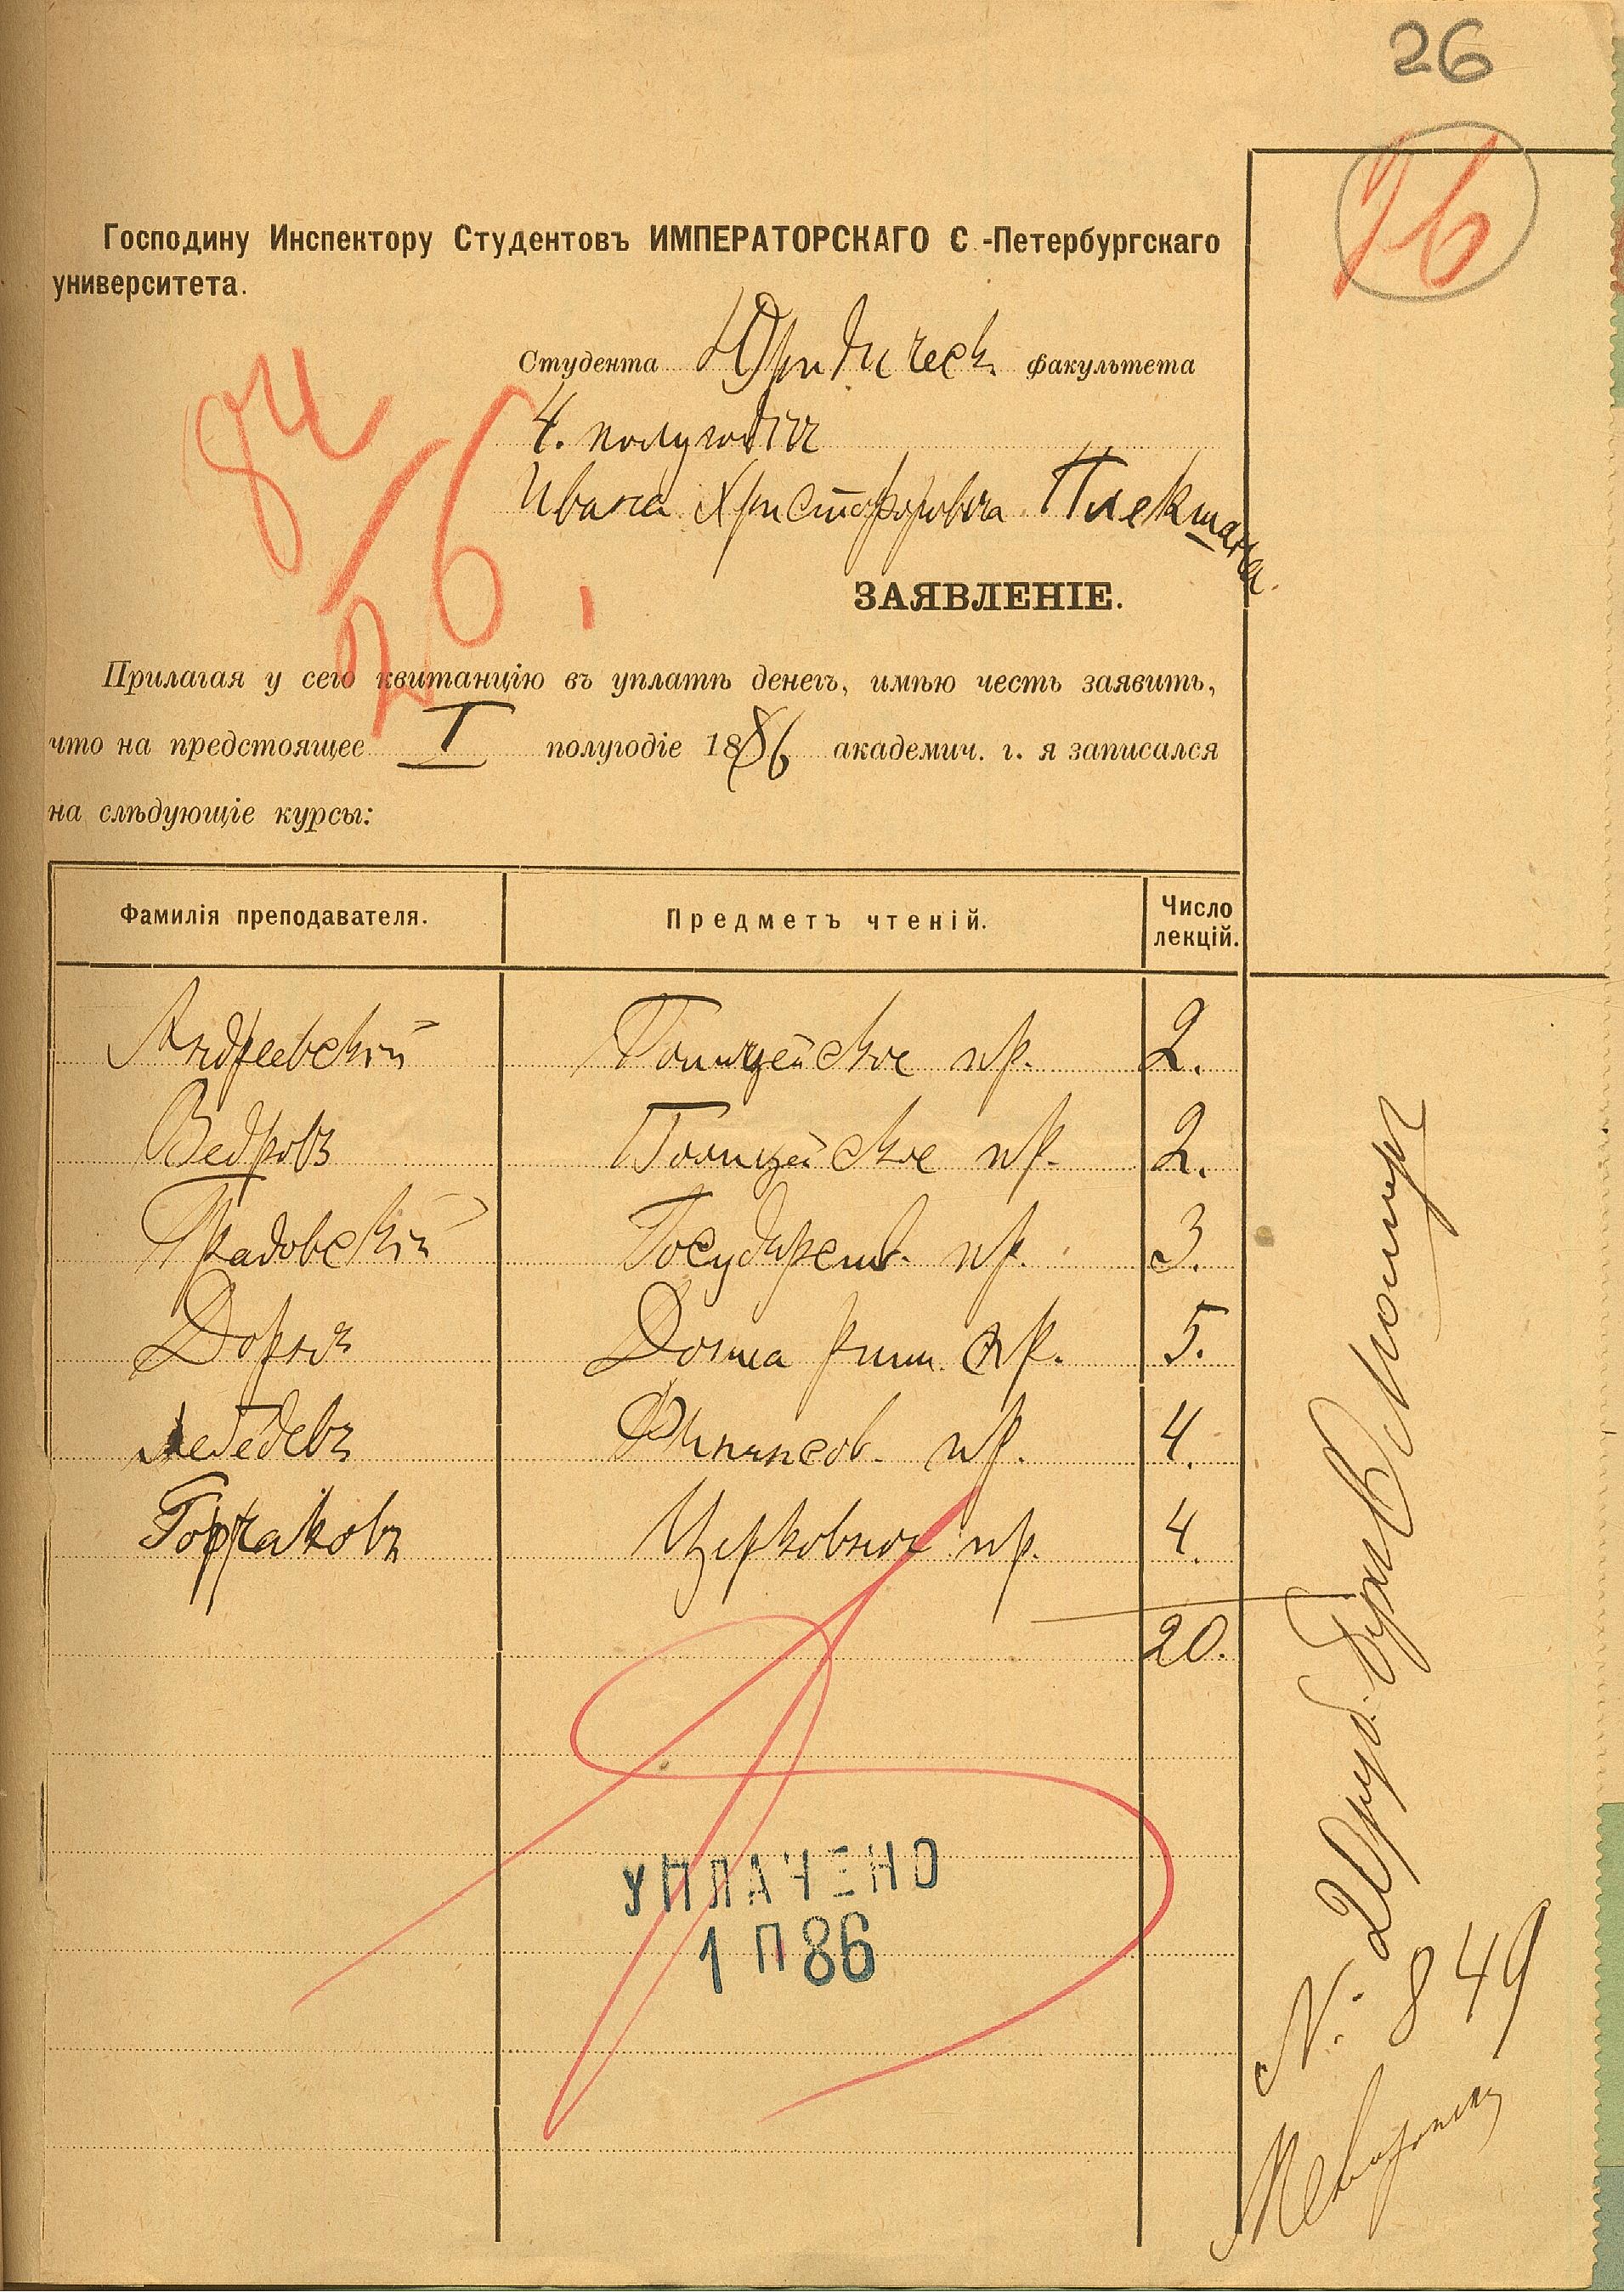 26
26
Господину Инспектору Студентовъ ИМПЕРАТОРСКАГО С.-Петербургскаго
университета.
Студента Юридическ. факультета
4. полугодія
Ивана Христофоровича Плекшана.
84/26.
ЗАЯВЛЕНІЕ.
Прилагая у сего квитанцію въ уплатѣ денегъ, имѣю честь заявить,
что на предстоящее I полугодіе 1886 академич. г. я записался
на слѣдующіе курсы:
Фамилія преподавателя. Предметъ чтеній. Число лекцій.
Андреевскій Полицейское пр. 2.
Ведровъ Полицейское пр. 2.
Градовскій Государств. пр. 3.
Дорнъ Догма римск. пр. 5.
Лебедевъ Финансов. пр. 4.
Горчаковъ Церковное пр. 4.
20.
УПЛАЧЕНО
1 П 86
20 руб.
№ 849